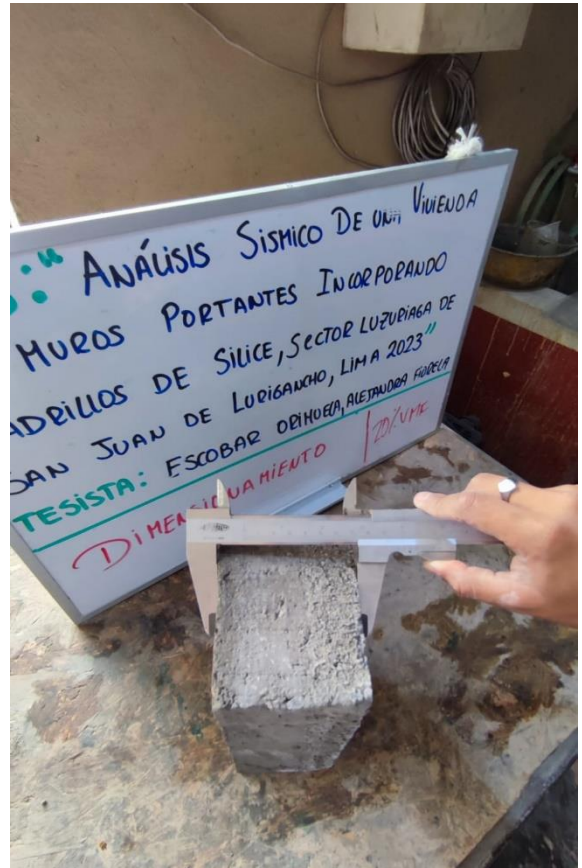 : " ANÁLISIS SISMICO DE UNA VIVIENDA
MUROS PORTANTES INCORPORANDO
ADRILLOS DE SILICE, SECTOR LUZURIAGA DE
SAN JUAN DE LURIGANCHO, LIMA 2023"
TESISTA: ESCOBAR ORIHUELA, ALEJANDRA FIORELA
DIMENSIONAMIENTO